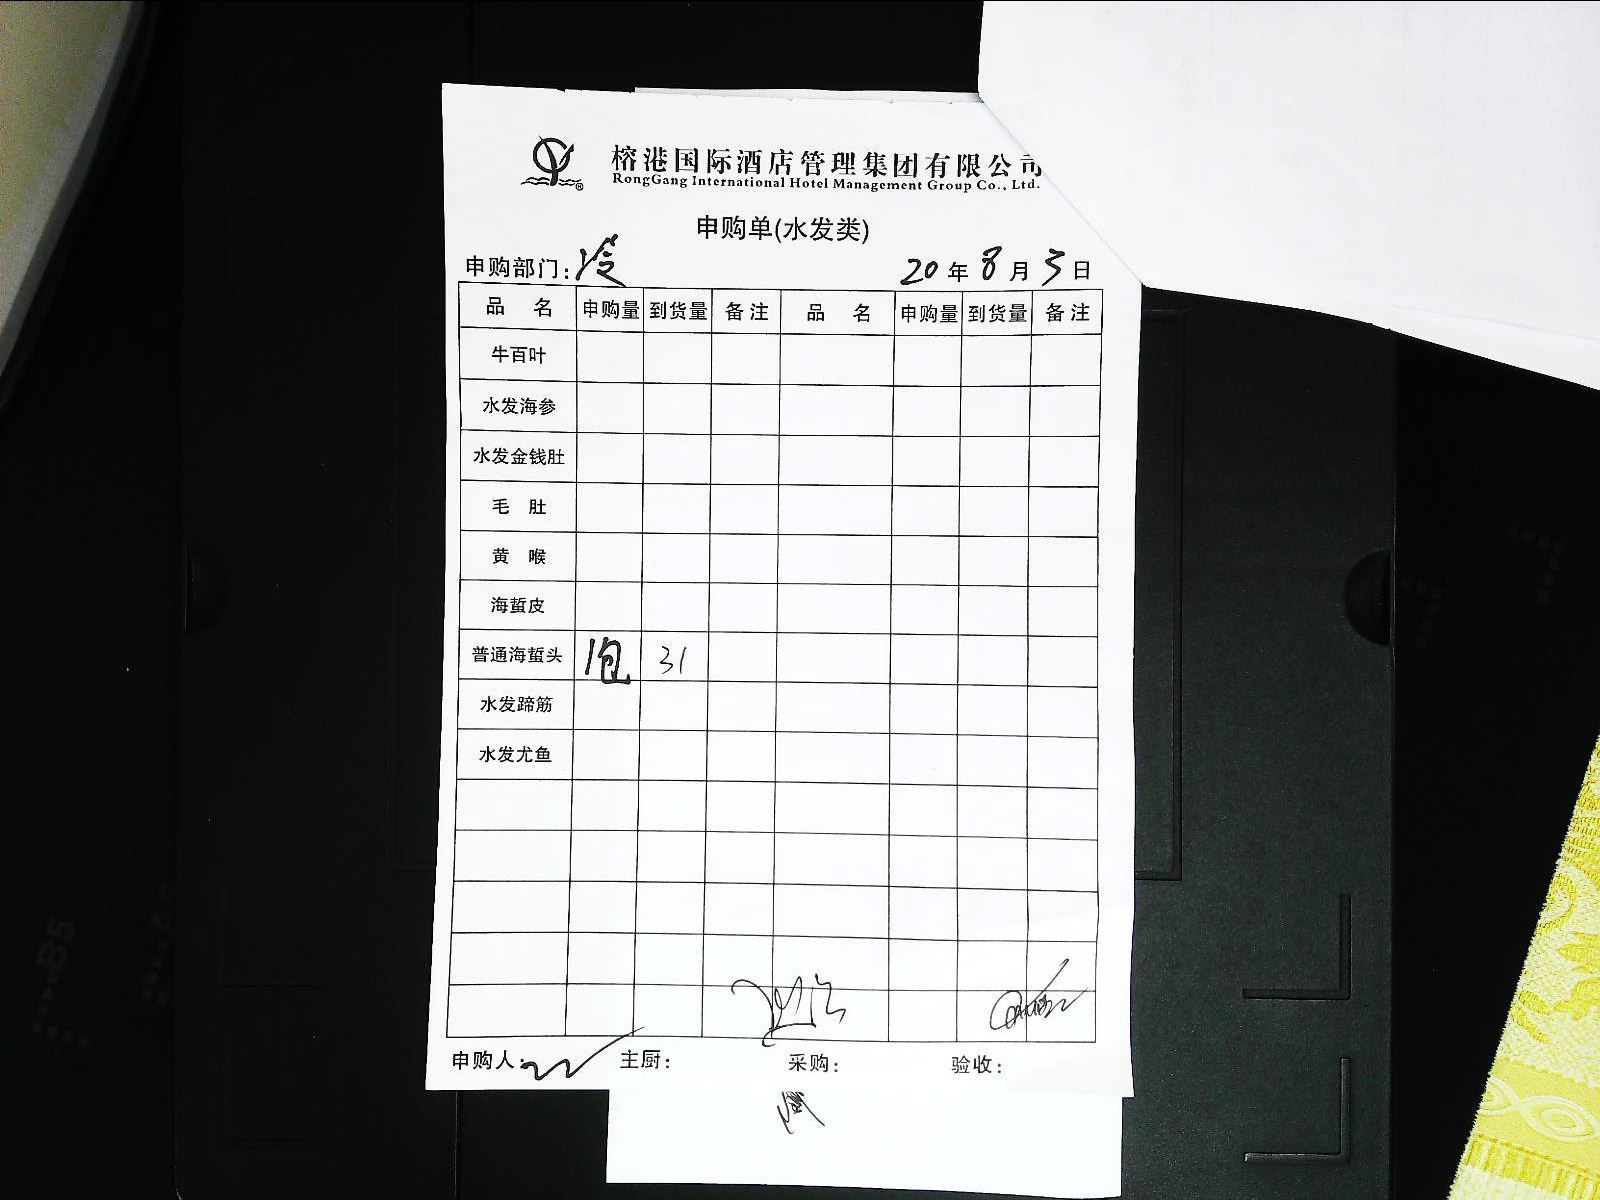 榕港国际酒店管理集团有限公司
RongGang International Hotel Management Group Co., Ltd.
申购单(水发类)
申购部门: 冷 20年8月5日
品名 申购量 到货量 备注 品名 申购量 到货量 备注
牛百叶
水发海参
水发金钱肚
毛肚
黄喉
海蜇皮
普通海蜇头 1包 31
水发蹄筋
水发尤鱼
申购人: 主厨: 采购: 验收:
B5